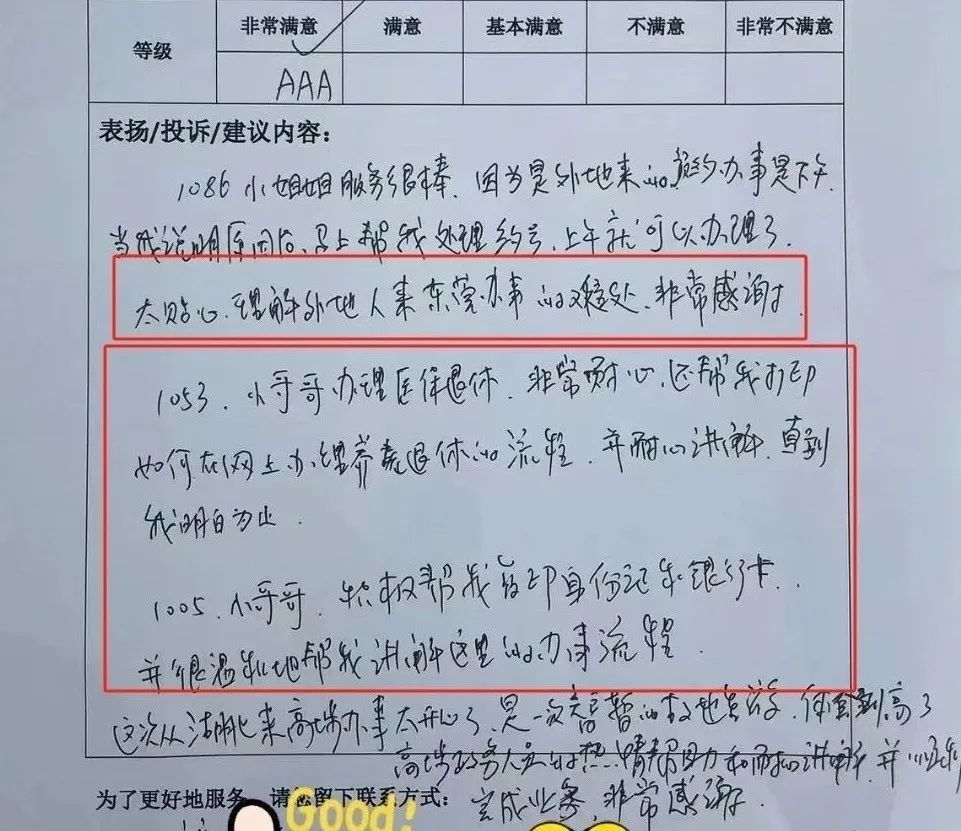 等级 非常满意 满意 基本满意 不满意 非常不满意
AAA
表扬/投诉/建议内容：
1086 小姐姐服务很棒，因为是外地来的，预约办事是下午，
当我说明原因后，马上帮我处理约号，上午就可以办理了，
太贴心，理解外地人来东莞办事的难处，非常感谢，
1053，小哥哥办理医保退休，非常耐心，还帮我打印
如何在网上办理养老退休的流程，并耐心讲解，直到
我明白为止.
1005，小哥哥，积极帮我复印身份证和银行卡，
并很温和地帮我讲解这里的办事流程
这次从湖北来高埗办事太开心了，是一次 的 地 ，体会到高了
高埗政务人员的热情帮助力和耐心讲解，并
为了更好地服务，请您留下联系方式： 完成业务，非常感谢.
Good!